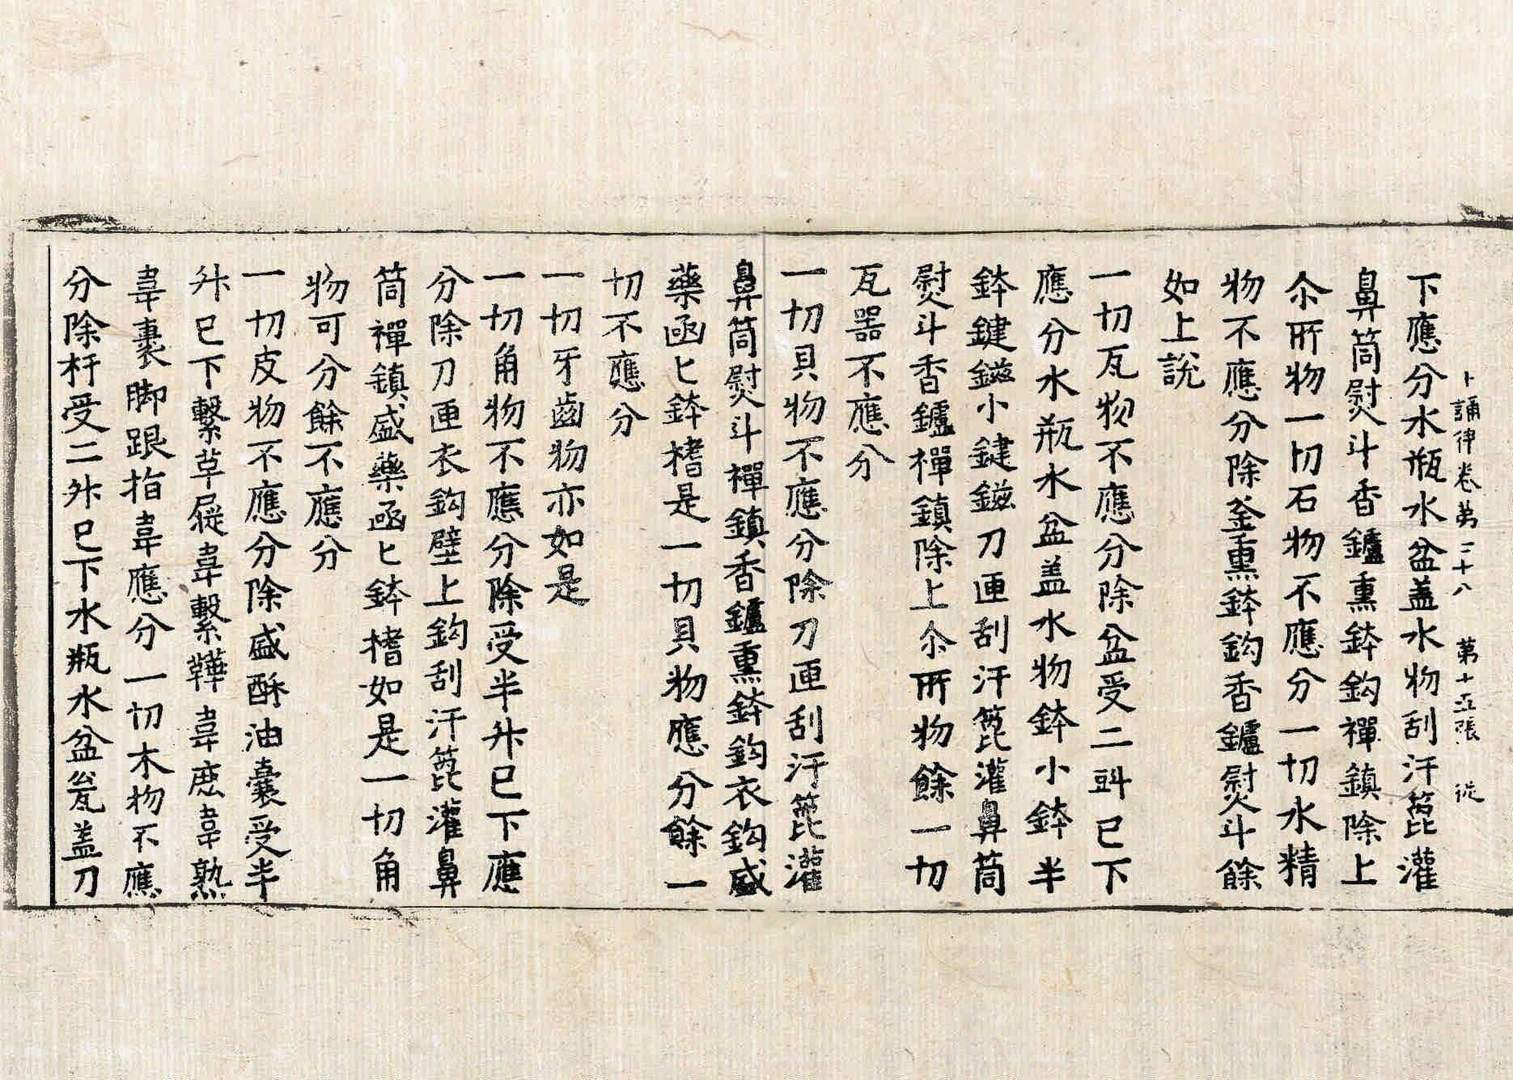 十誦律卷第二十八　第十五張　従
下應分水瓶水盆盖水物刮汗篦灌
鼻筒熨斗香鑪熏鉢鈎禪鎮除上
尒所物一切石物不應分一切水精
物不應分除釜熏鉢鈎香鑪熨斗餘
如上說
一切瓦物不應分除盆受二㪷已下
應分水瓶水盆盖水物鉢小鉢半
鉢鍵鎡小鍵鎡刀匣刮汗篦灌鼻筒
熨斗香鑪禪鎮除上尒所物餘一切
瓦器不應分
一切貝物不應分除刀匣刮汗篦灌
鼻筒熨斗禪鎮香鑪熏鉢鈎衣鈎盛
藥凾匕鉢榰是一切貝物應分餘一
切不應分
一切牙齒物亦如是
一切角物不應分除受半升已下應
分除刀匣衣鈎壁上鈎刮汗篦灌鼻
筒禪鎮盛藥凾匕鉢榰如是一切角
物可分餘不應分
一切皮物不應分除盛酥油囊受半
升已下繫草屣韋繫鞾韋庶韋熟
韋裹脚跟指韋應分一切木物不應
分除杅受二升已下水瓶水盆瓫盖刀